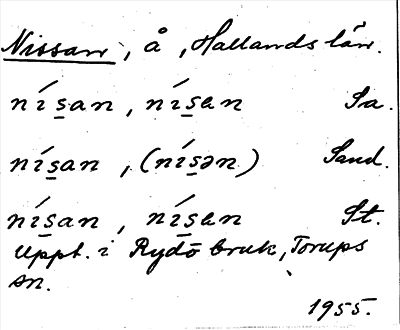 Nissan, å, Hallands län.
nís̲an, nís̲an Sa.
nís̲an, (nís̲ən) Sand.
nís̲an, nís̲an St.
Uppt. i Rydö bruk, Torups
sn.
1955.